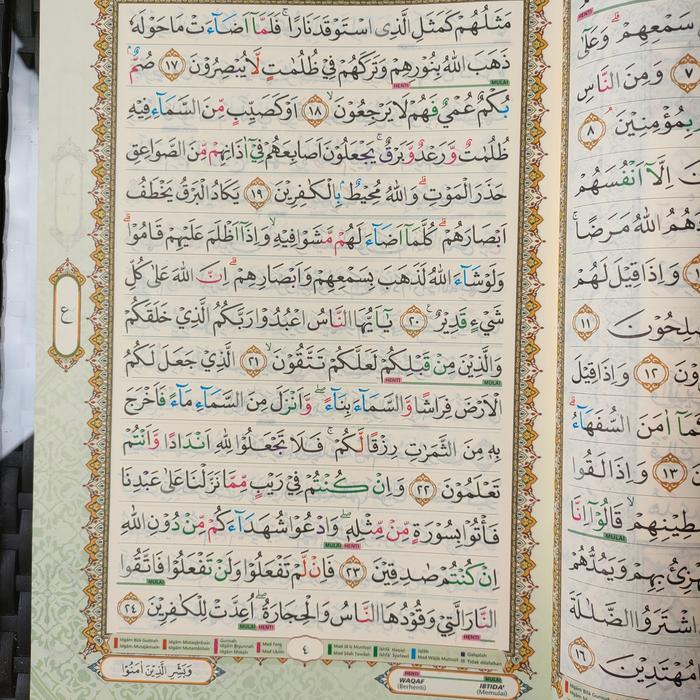 مَثَلُهُمْ كَمَثَلِ الَّذِى اسْتَوْقَدَ نَارًاۚ فَلَمَّآ اَضَاۤءَتْ مَا حَوْلَهٗ
ذَهَبَ اللّٰهُ بِنُوْرِهِمْ وَتَرَكَهُمْ فِيْ ظُلُمٰتٍ لَّا يُبْصِرُوْنَ ١٧ صُمٌّ ۢ
بُكْمٌ عُمْيٌ فَهُمْ لَا يَرْجِعُوْنَۙ ١٨ اَوْ كَصَيِّبٍ مِّنَ السَّمَاۤءِ فِيْهِ
ظُلُمٰتٌ وَّرَعْدٌ وَّبَرْقٌۚ يَجْعَلُوْنَ اَصَابِعَهُمْ فِيْٓ اٰذَانِهِمْ مِّنَ الصَّوَاعِقِ
حَذَرَ الْمَوْتِۗ وَاللّٰهُ مُحِيْطٌۢ بِالْكٰفِرِيْنَ ١٩ يَكَادُ الْبَرْقُ يَخْطَفُ
اَبْصَارَهُمْۗ كُلَّمَآ اَضَاۤءَ لَهُمْ مَّشَوْا فِيْهِۙ وَاِذَآ اَظْلَمَ عَلَيْهِمْ قَامُوْاۗ
وَلَوْ شَاۤءَ اللّٰهُ لَذَهَبَ بِسَمْعِهِمْ وَاَبْصَارِهِمْۗ اِنَّ اللّٰهَ عَلٰى كُلِّ
شَيْءٍ قَدِيْرٌࣖ ٢٠ يٰٓاَيُّهَا النَّاسُ اعْبُدُوْا رَبَّكُمُ الَّذِيْ خَلَقَكُمْ
وَالَّذِيْنَ مِنْ قَبْلِكُمْ لَعَلَّكُمْ تَتَّقُوْنَۙ ٢١ الَّذِيْ جَعَلَ لَكُمُ
الْاَرْضَ فِرَاشًا وَّالسَّمَاۤءَ بِنَاۤءًۖ وَّاَنْزَلَ مِنَ السَّمَاۤءِ مَاۤءً فَاَخْرَجَ
بِهٖ مِنَ الثَّمَرٰتِ رِزْقًا لَّكُمْۚ فَلَا تَجْعَلُوْا لِلّٰهِ اَنْدَادًا وَّاَنْتُمْ
تَعْلَمُوْنَ ٢٢ وَاِنْ كُنْتُمْ فِيْ رَيْبٍ مِّمَّا نَزَّلْنَا عَلٰى عَبْدِنَا
فَأْتُوْا بِسُوْرَةٍ مِّنْ مِّثْلِهٖۖ وَادْعُوْا شُهَدَاۤءَكُمْ مِّنْ دُوْنِ اللّٰهِ
اِنْ كُنْتُمْ صٰدِقِيْنَ ٢٣ فَاِنْ لَّمْ تَفْعَلُوْا وَلَنْ تَفْعَلُوْا فَاتَّقُوا
النَّارَ الَّتِيْ وَقُوْدُهَا النَّاسُ وَالْحِجَارَةُۖ اُعِدَّتْ لِلْكٰفِرِيْنَ ٢٤
٤
وَبَشِّرِ الَّذِيْنَ اٰمَنُوْا
HENTI WAQAF (Berhenti)
MULAI IBTIDA' (Memulai)
ع
سَمْعِهِمْۗ وَعَلٰٓى
٧ وَمِنَ النَّاسِ
بِمُؤْمِنِيْنَۘ ٨
اِلَّآ اَنْفُسَهُمْ
اللّٰهُ مَرَضًاۚ
وَاِذَا قِيْلَ لَهُمْ
١١
١٢ وَاِذَا قِيْلَ
اٰمَنَ السُّفَهَاۤءُۗ
١٣ وَاِذَا لَقُوا
قَالُوْٓا اِنَّا
بِهِمْ وَيَمُدُّهُمْ
اشْتَرَوُا الضَّلٰلَةَ
١٦